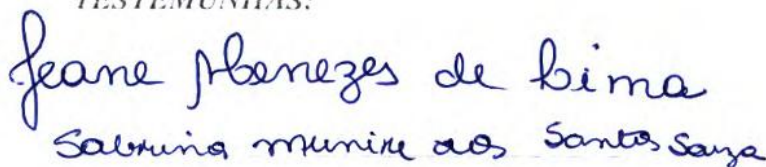 TESTEMUNHAS:
Jeane Menezes de Lima
Sabrina munire dos Santos Souza